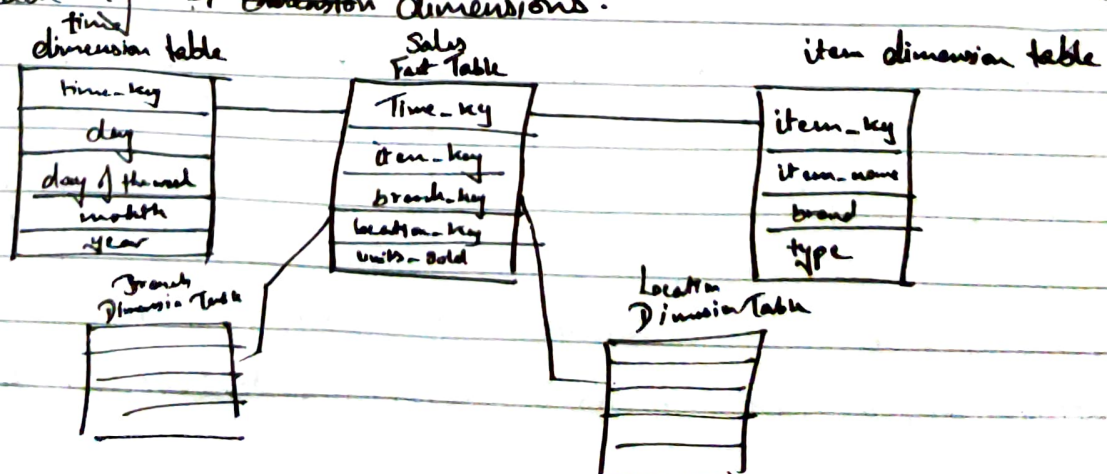 dimensions.
time
dimension table
time_key
day
day of the week
month
year
Sales
Fact Table
Time_key
item_key
branch_key
location_key
units_sold
item dimension table
item_key
item_name
brand
type
Branch
Dimension Table
Location
Dimension Table